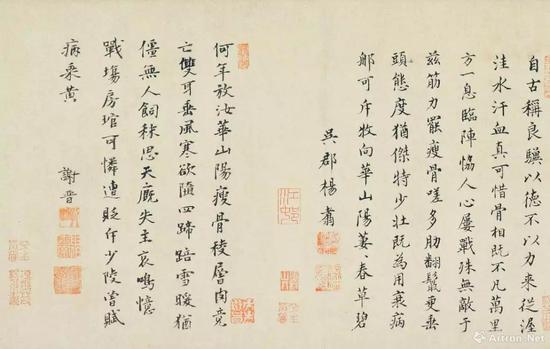 自古稱良驥以德不以力来從渥
洼水汗血真可惜骨相既不凡萬里
方一息臨陣恊人心屢戰殊無敵于
兹筋力罷瘦骨嗟多肋翻鬛更垂
頭態度猶傑特少壮既為用衰病
那可斥牧向華山陽萋〻春草碧
吳郡楊翥
何年放汝華山陽瘦骨稜層肉竟
亡雙耳垂風寒欲隕四蹄踣雪暖猶
僵無人飼秣思天廐失主哀鳴憶
戰塲房琯可憐遭貶斥少陵曾賦
病乘黄 謝晋
Artron.Net